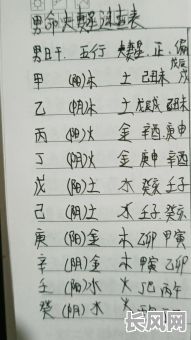 男命夫妻星速查表
男日干 五行 夫妻星 正、偏
甲 (阳)木 土 己丑未 戊辰戌
乙 (阴)木 土 戊辰戌 己丑未
丙 (阳)火 金 辛酉 庚申
丁 (阴)火 金 庚申 辛酉
戊 (阳)土 水 癸亥 壬子
己 (阴)土 水 壬子 癸亥
庚 (阳)金 木 乙卯 甲寅
辛 (阴)金 木 甲寅 乙卯
壬 (阳)水 火 丙午
癸 (阴)水 火
长风网